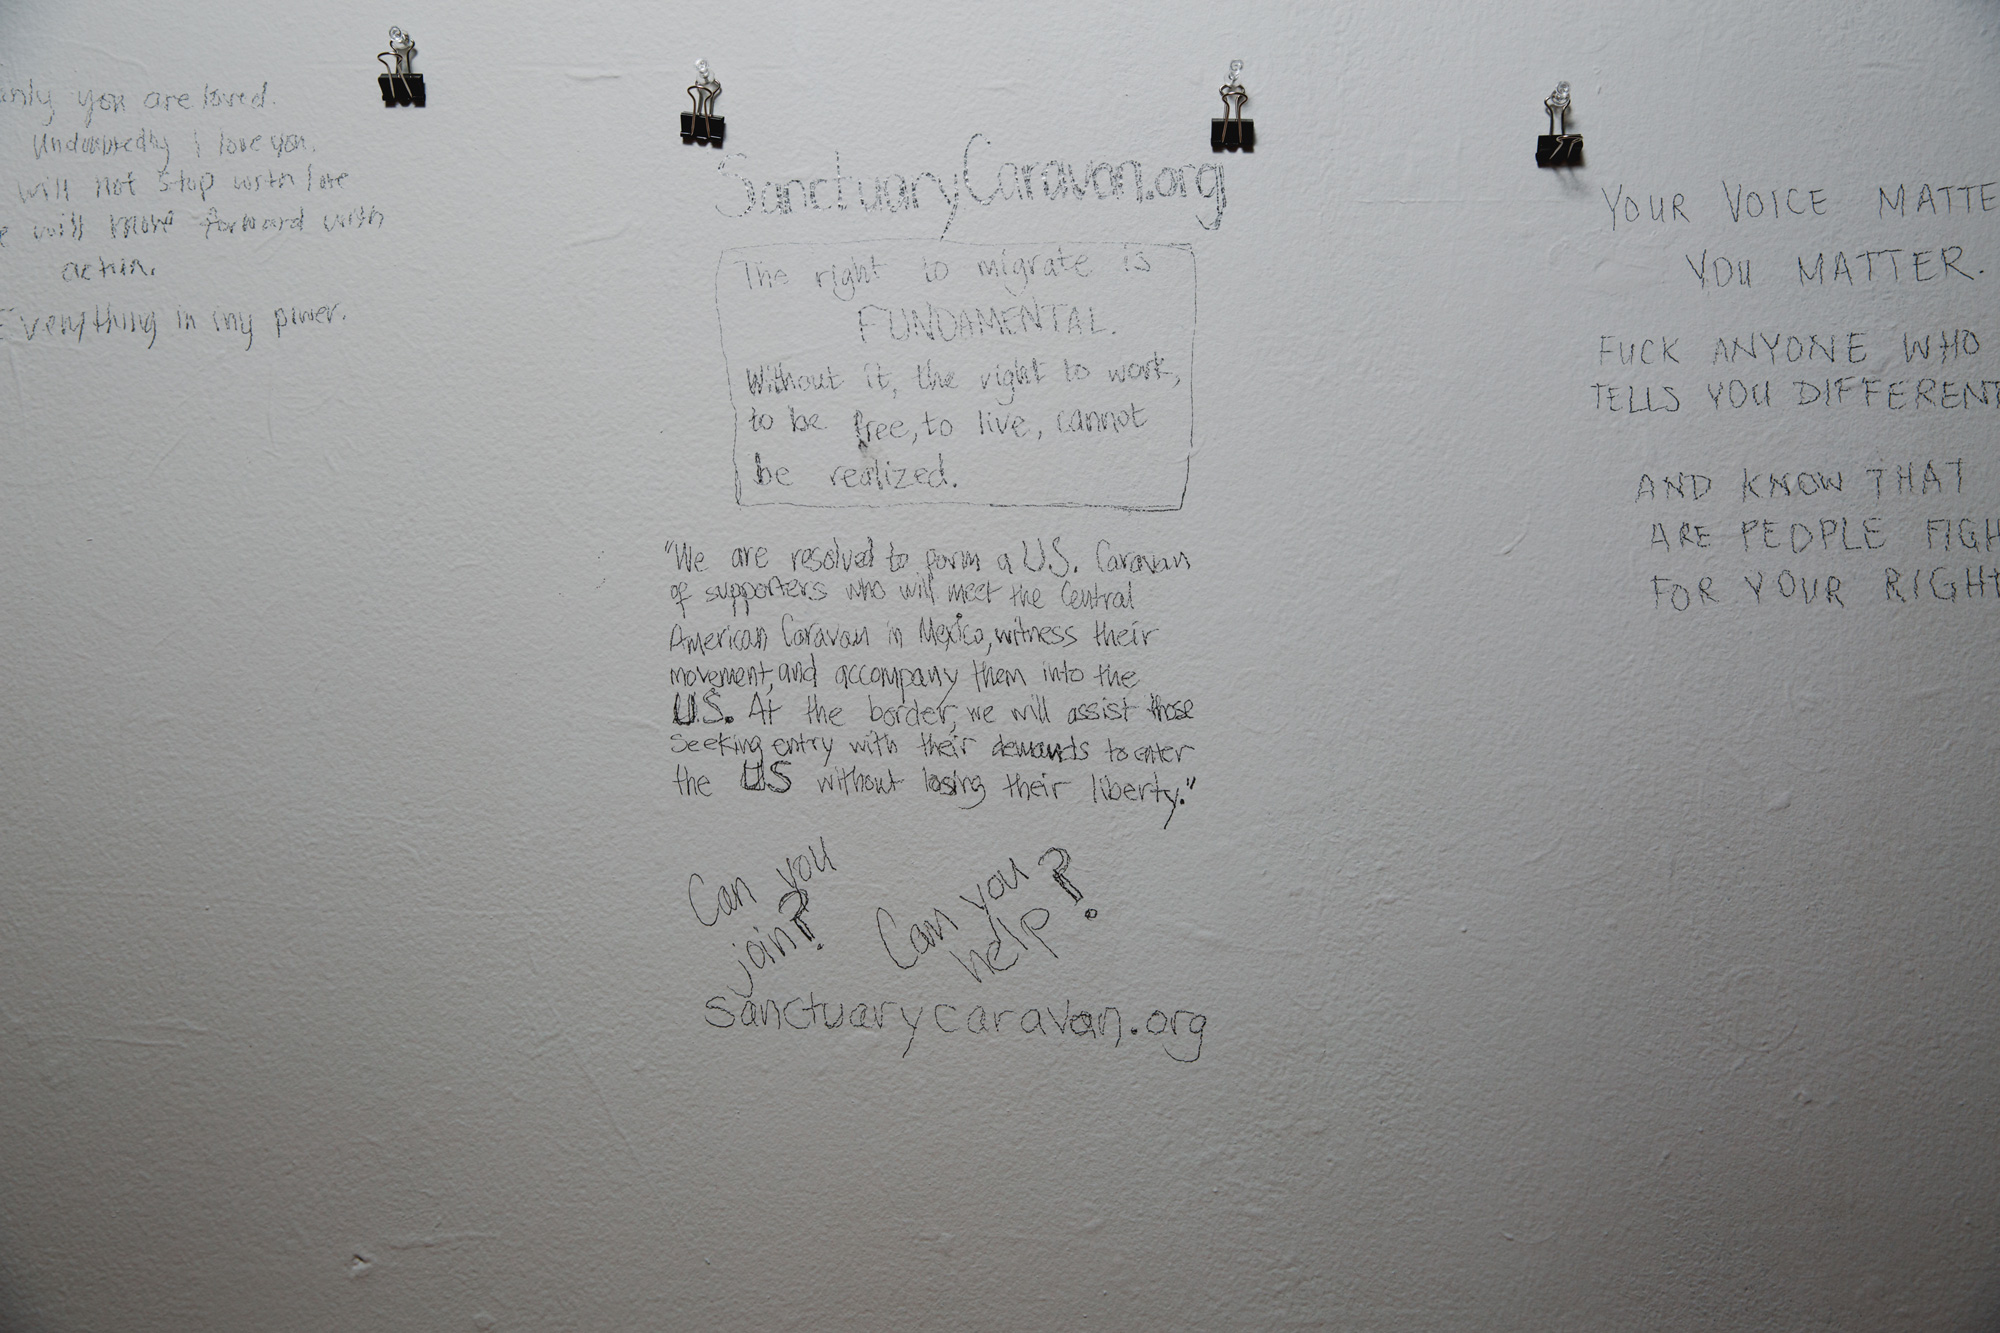 you are loved.
Undoubtedly I love you.
will not stop with love
will move forward with
action.
Everything in my power.
SanctuaryCaravan.org
The right to migrate is
FUNDAMENTAL.
Without it, the right to work,
to be free, to live, cannot
be realized.
"We are resolved to form a U.S. Caravan
of supporters who will meet the Central
American Caravan in Mexico, witness their
movement, and accompany them into the
U.S. At the border, we will assist those
seeking entry with their demands to enter
the US without losing their liberty."
Can you
join?
Can you
help?
sanctuarycaravan.org
YOUR VOICE MATTE
YOU MATTER.
FUCK ANYONE WHO
TELLS YOU DIFFERENT
AND KNOW THAT
ARE PEOPLE FIGH
FOR YOUR RIGHT